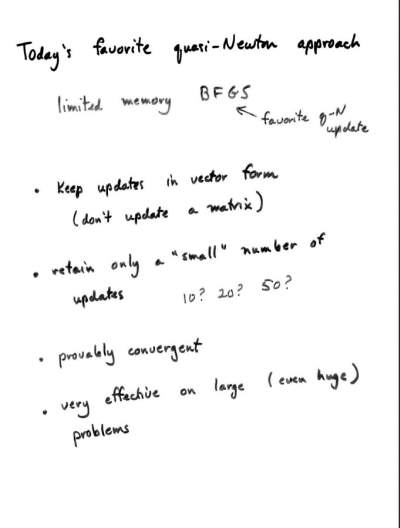 Today's favorite quasi-Newton approach
limited memory BFGS
favorite q-N
update
• Keep updates in vector form
(don't update a matrix)
• retain only a "small" number of
updates 10? 20? 50?
• provably convergent
• very effective on large (even huge)
problems